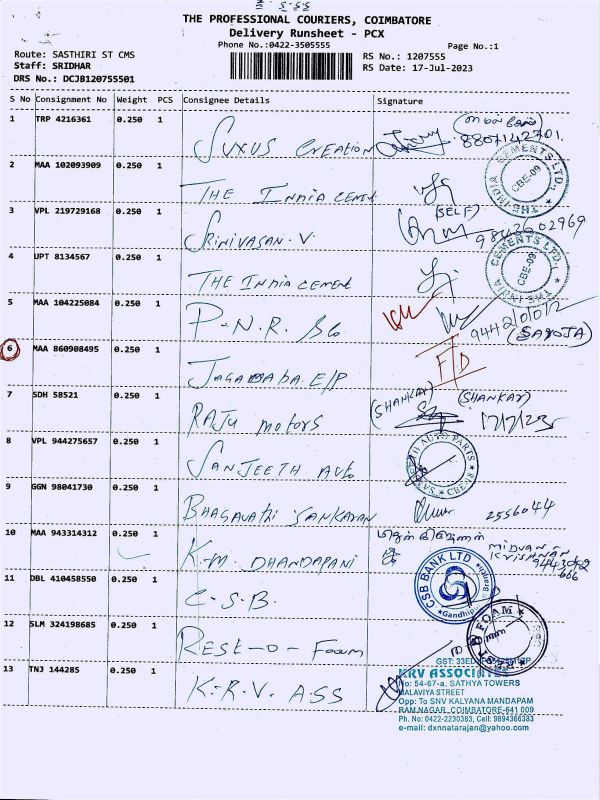 THE PROFESSIONAL COURIERS, COIMBATORE
Delivery Runsheet - PCX
Phone No.:0422-3505555
Page No.:1
Route: SASTHIRI ST CMS
Staff: SRIDHAR
DRS No.: DCJB120755501
RS No.: 1207555
RS Date: 17-Jul-2023
S No Consignment No Weight PCS Consignee Details Signature
1 TRP 4216361 0.250 1 SUXUS CREATION 8807142701.
2 MAA 102093909 0.250 1 THE INDIA CEMENT
THE INDIA CEMENTS LTD. CBE-09
3 VPL 219729168 0.250 1 SRINIVASAN.V. (SELF) 9842602969
4 UPT 8134567 0.250 1 THE INDIA CEMENT
THE INDIA CEMENTS LTD. CBE-09
5 MAA 104225084 0.250 1 P.N.R. &Co (SAROJA)
6 MAA 860908495 0.250 1 E/P F/D
7 SDH 58521 0.250 1 RAJU motors (SHANKAR) (SHANKAR) 17/7/23
8 VPL 944275657 0.250 1 SANJEETH Auto
AUTO PARTS
9 GGN 98041730 0.250 1 BHAGAVATHI SANKARAN 2556044
10 MAA 943314312 0.250 1 K.M. DHANDAPANI KRISHNAN
11 DBL 410458550 0.250 1 C.S.B.
CSB BANK LTD
12 SLM 324198685 0.250 1 REST-O-Foam
FOAM
13 TNJ 144285 0.250 1 K.R.V. ASS
KRV ASSOCIATES
No: 54-67-a, SATHYA TOWERS
MALAVIYA STREET
Opp: To SNV KALYANA MANDAPAM
RAM NAGAR, COIMBATORE-641 009
Ph. No: 0422-2230383, Cell: 9894366383
e-mail: dxnnatarajan@yahoo.com